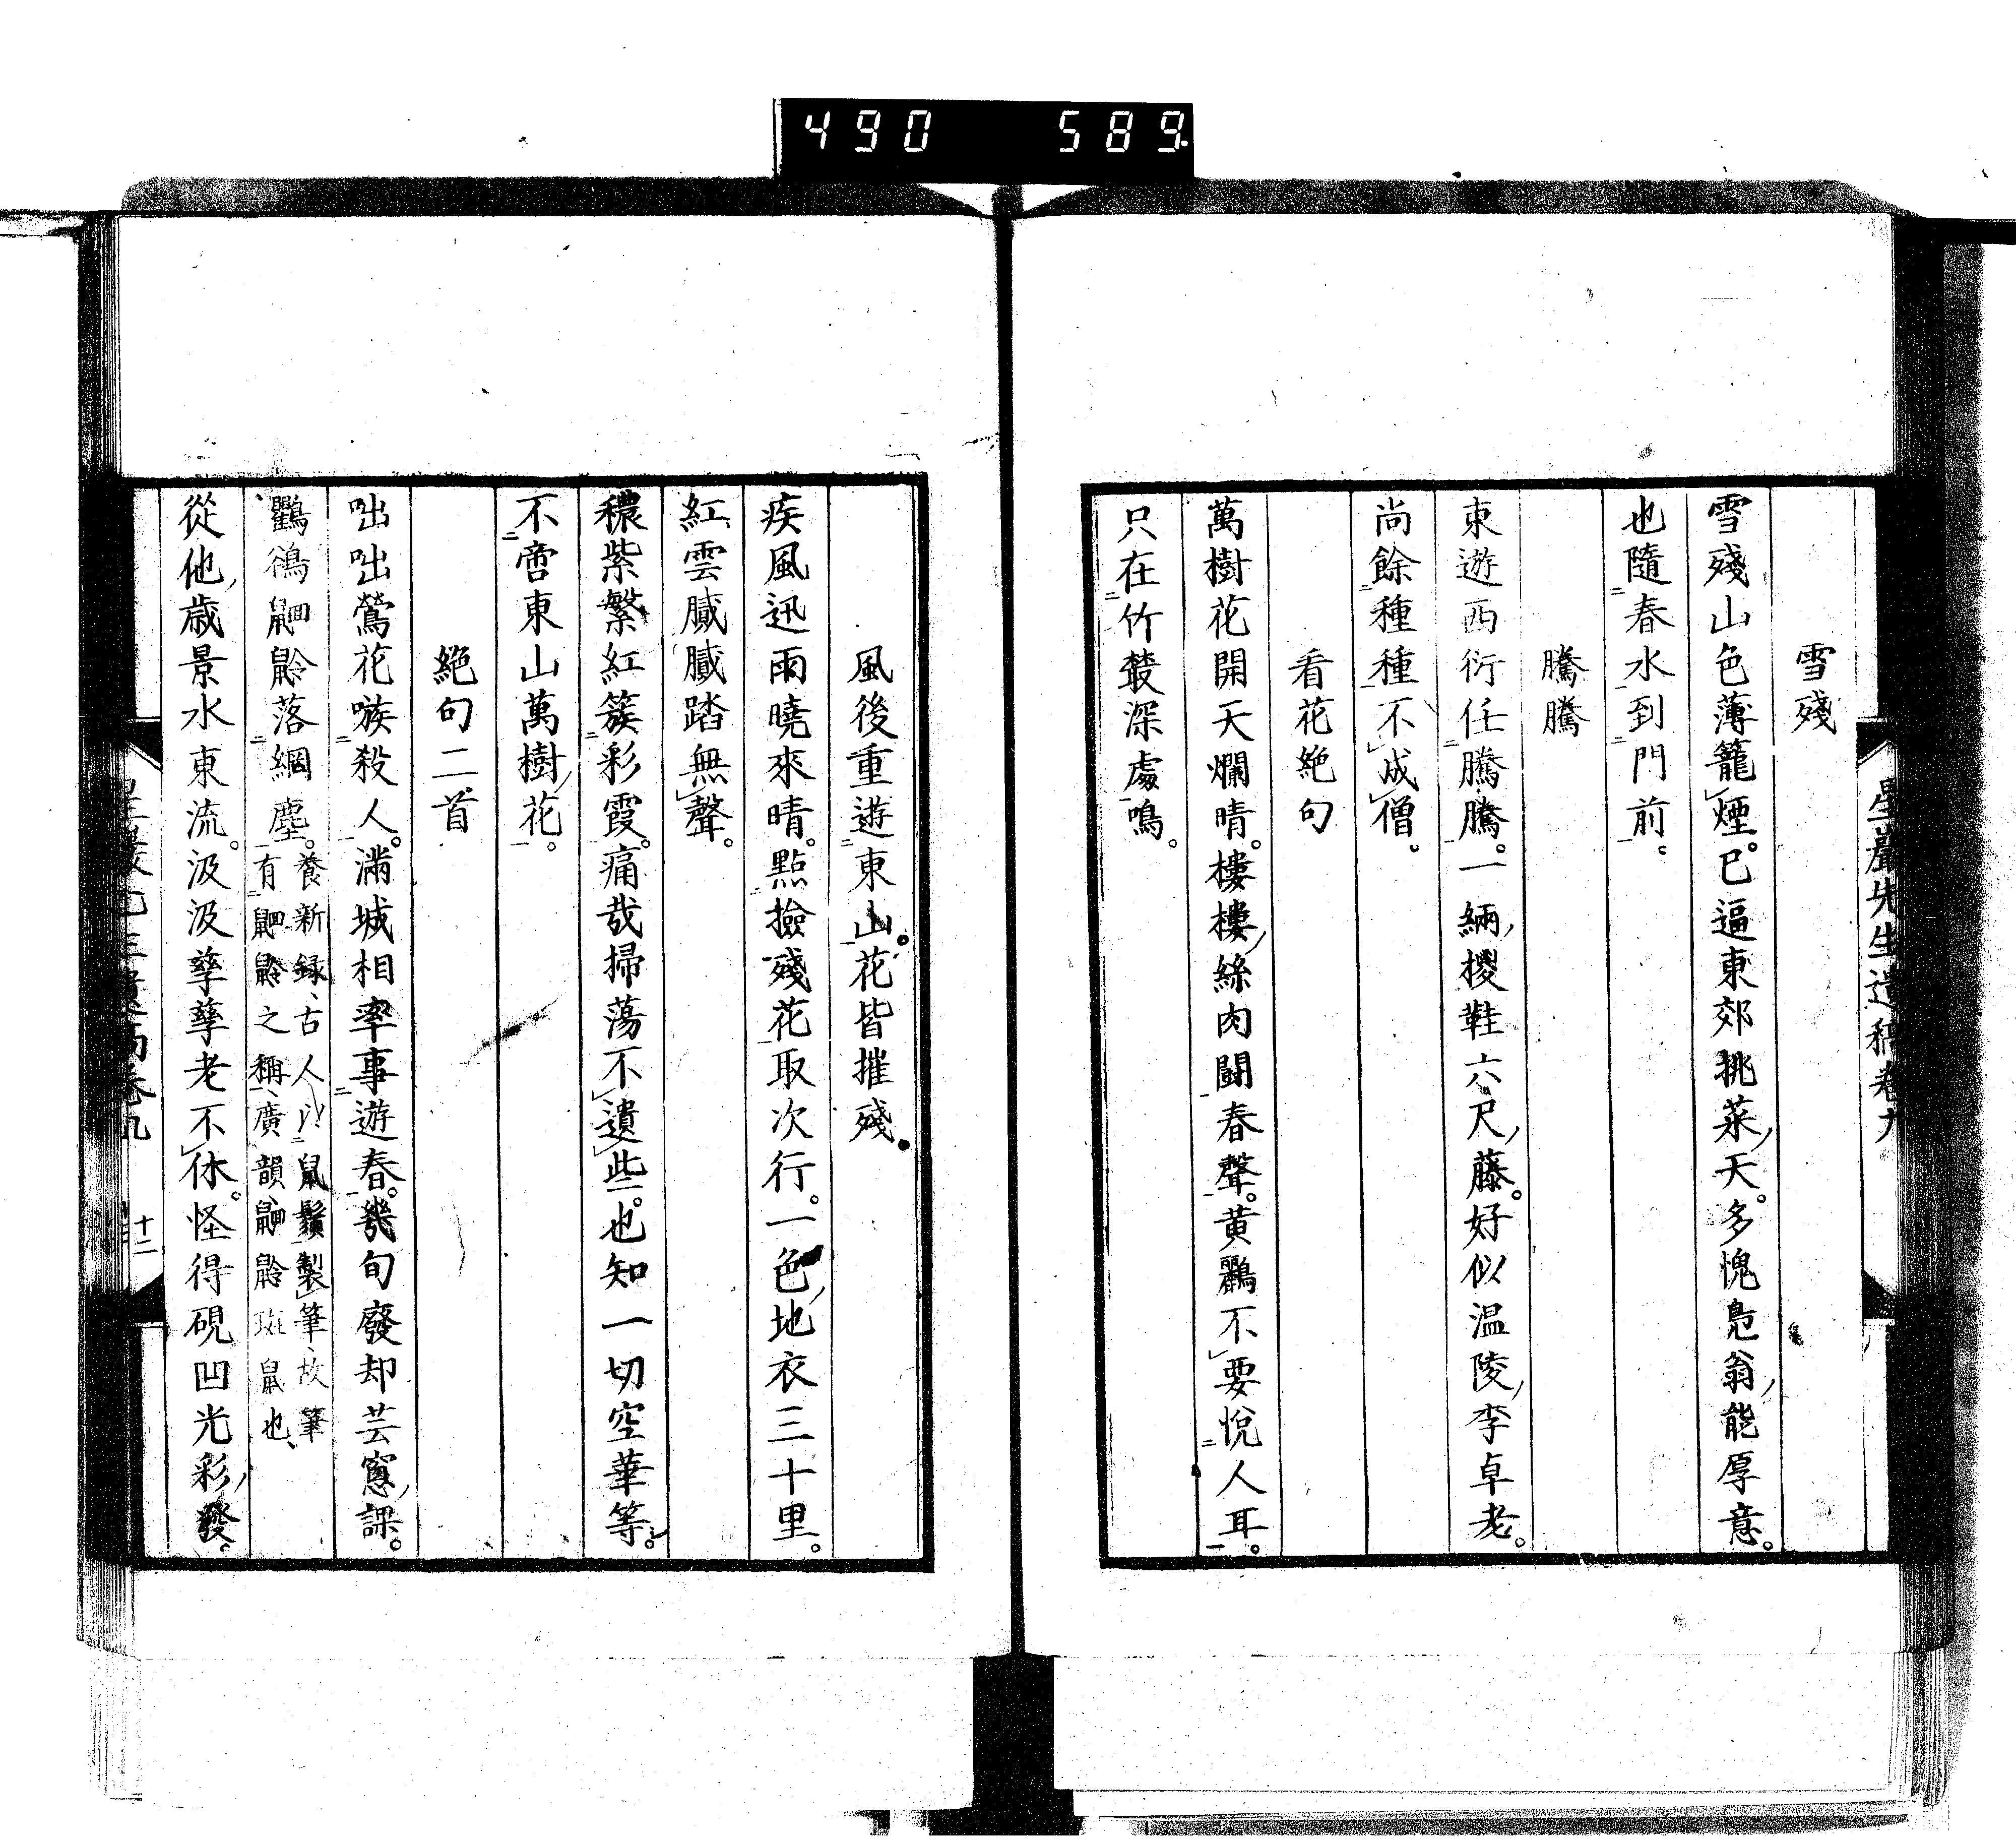 490 589
星巖先生遺稿卷九
雪殘
雪殘山色薄籠煙。已逼東郊挑菜天。多愧鳬翁能厚意。
也隨春水到門前。
騰騰
東遊西衍任騰騰。一緉椶鞋六尺藤。好似溫陵李卓老。
尚餘種種不成僧。
看花絶句
萬樹花開天爛晴。樓樓絲肉鬪春聲。黃鸝不要悅人耳。
只在竹叢深處鳴。
風後重遊東山。花皆摧殘。
疾風迅雨曉來晴。點撿殘花取次行。一色地衣三十里。
紅雲膩膩踏無聲。
穠紫繁紅簇彩霞。痛哉掃蕩不遺些。也知一切空華等。
不啻東山萬樹花。
絕句二首
咄咄鶯花嗾殺人。滿城相率事遊春。幾旬廢却芸窻課。
鸜鵒鼬鼯落網塵。
養新錄、古人以鼠鬚製筆、故筆
有之稱、廣韻斑鼠也、
從他歲景水東流。汲汲孳孳老不休。怪得硯凹光彩發。
十二